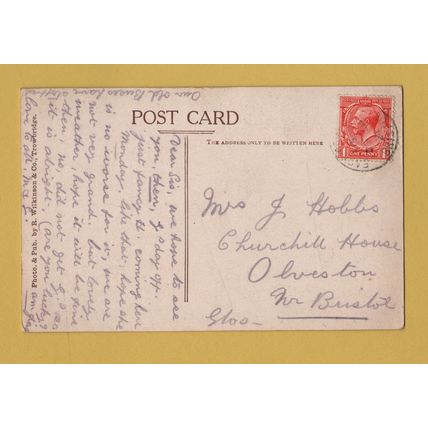 POST CARD
THE ADDRESS ONLY TO BE WRITTEN HERE
ONE PENNY
Photo. & Pub. by R. Wilkinson & Co., Trowbridge.
Mrs J Hobbs
Churchill House
Olveston
Nr Bristol
Glos—
Dear Sis, we hope to see
you, then, day off.
Just fancy Jt coming here
Monday, like that, hope she
is no worse for it, we are
not very grand, but lovely
weather, hope it will be fine
then, no, did not get
it is alright, are you lucky?
love to all,
Our old have